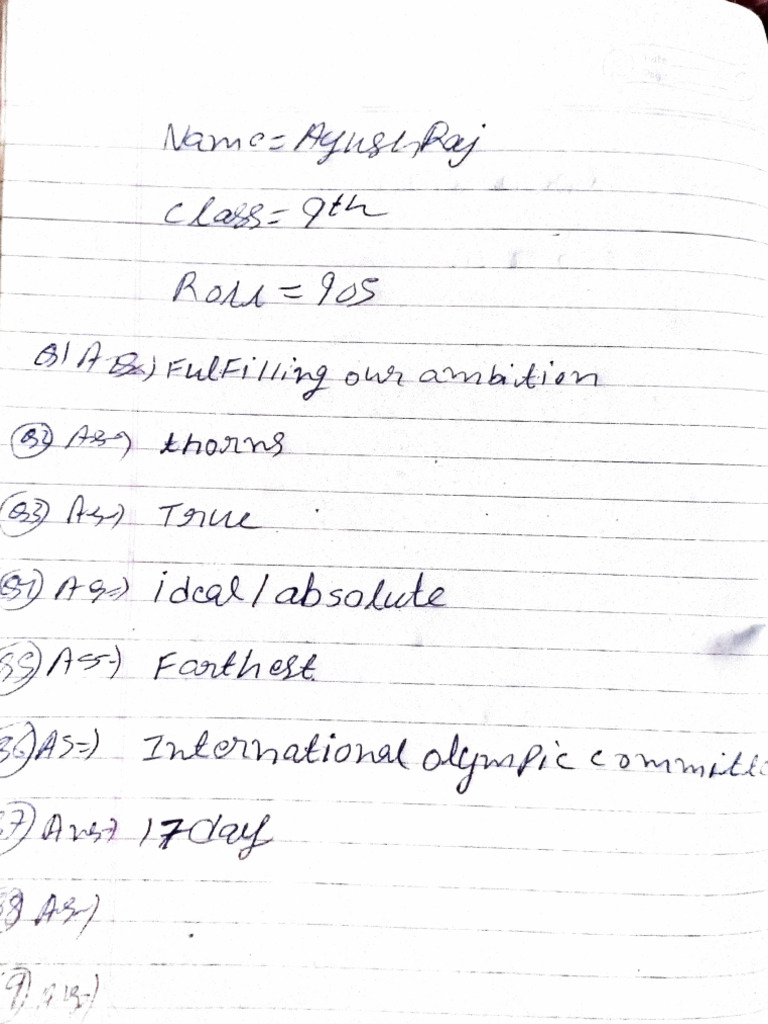 Name = Ayush Raj
Class = 9th
Roll = 905
Q1 A Fulfilling our ambition
Q2 As=) thorns
Q3 As=) True
As=) ideal/absolute
As=) Farthest
As=) International olympic committe
7) Ans=) 17 day
As=)
9)